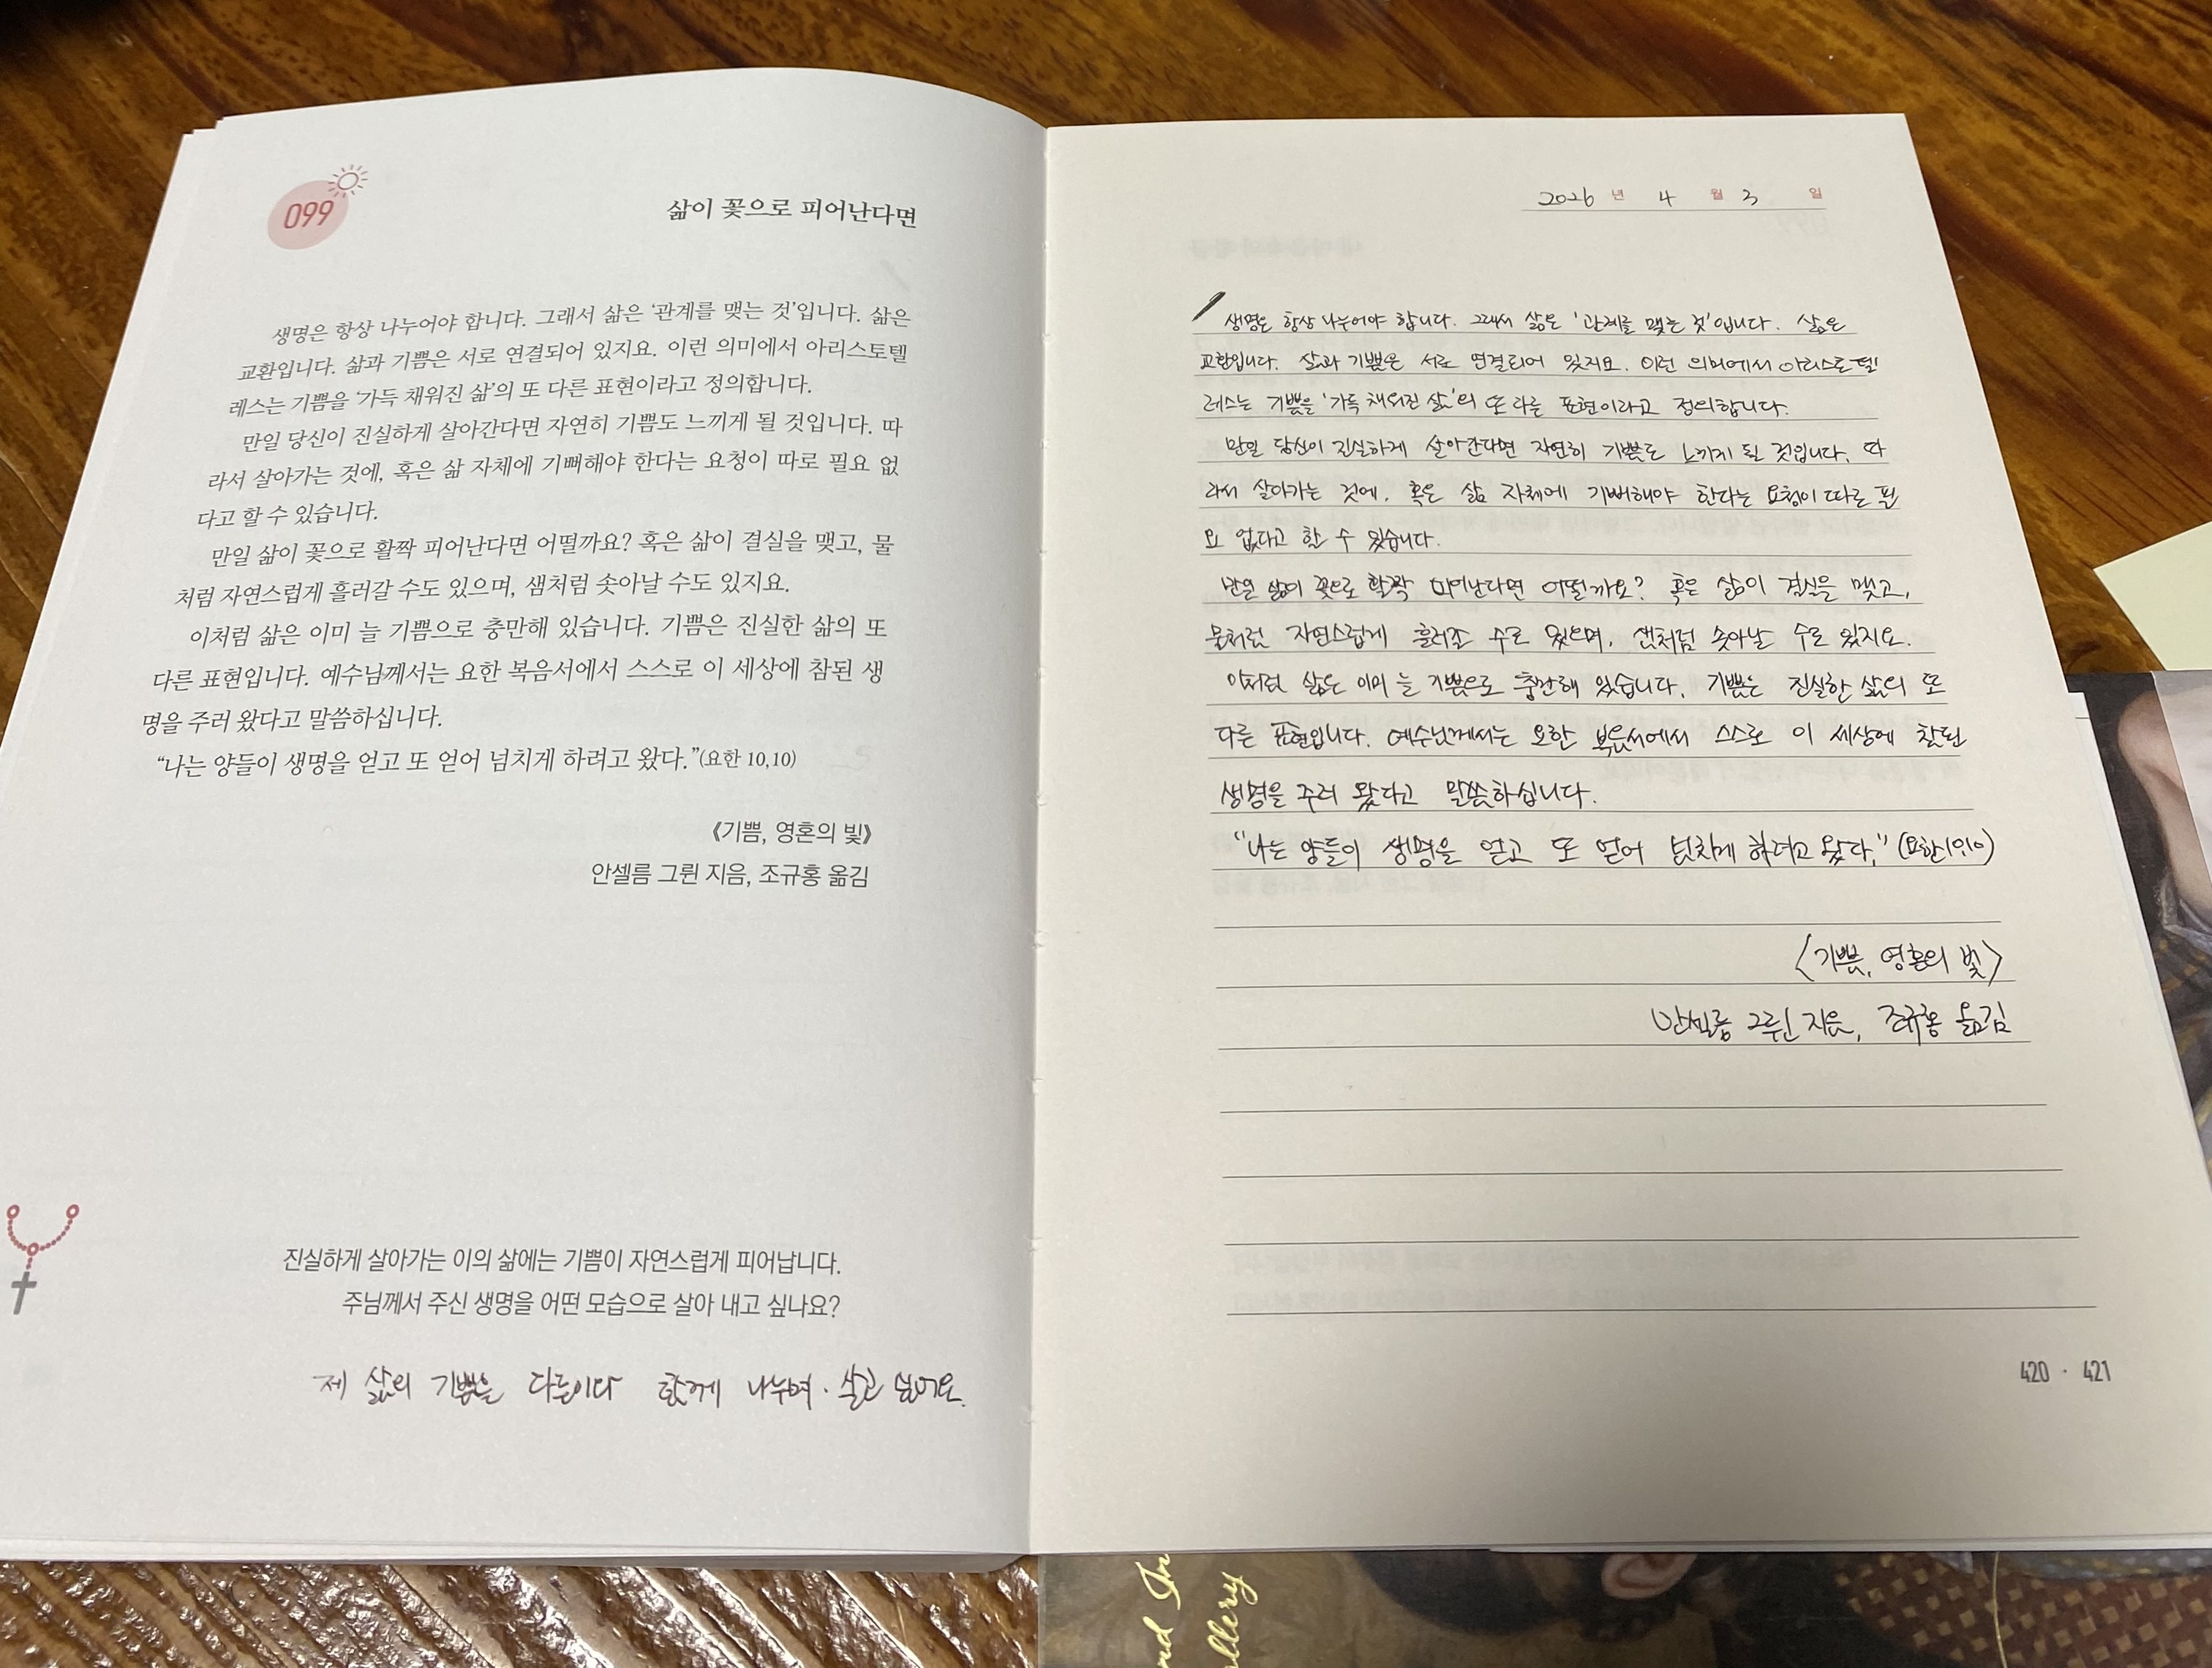 099
삶이 꽃으로 피어난다면
생명은 항상 나누어야 합니다. 그래서 삶은 ‘관계를 맺는 것’입니다. 삶은
교환입니다. 삶과 기쁨은 서로 연결되어 있지요. 이런 의미에서 아리스토텔
레스는 기쁨을 ‘가득 채워진 삶’의 또 다른 표현이라고 정의합니다.
만일 당신이 진실하게 살아간다면 자연히 기쁨도 느끼게 될 것입니다. 따
라서 살아가는 것에, 혹은 삶 자체에 기뻐해야 한다는 요청이 따로 필요 없
다고 할 수 있습니다.
만일 삶이 꽃으로 활짝 피어난다면 어떨까요? 혹은 삶이 결실을 맺고, 물
처럼 자연스럽게 흘러갈 수도 있으며, 샘처럼 솟아날 수도 있지요.
이처럼 삶은 이미 늘 기쁨으로 충만해 있습니다. 기쁨은 진실한 삶의 또
다른 표현입니다. 예수님께서는 요한 복음서에서 스스로 이 세상에 참된 생
명을 주러 왔다고 말씀하십니다.
“나는 양들이 생명을 얻고 또 얻어 넘치게 하려고 왔다.”(요한 10,10)
《기쁨, 영혼의 빛》
안셀름 그륀 지음, 조규홍 옮김
진실하게 살아가는 이의 삶에는 기쁨이 자연스럽게 피어납니다.
주님께서 주신 생명을 어떤 모습으로 살아 내고 싶나요?
제 삶의 기쁨을 다른이와 함께 나누며 살고 싶어요.
2026 년 4 월 3 일
생명은 항상 나누어야 합니다. 그래서 삶은 '관계를 맺는 것'입니다. 삶은
교환입니다. 삶과 기쁨은 서로 연결되어 있지요. 이런 의미에서 아리스토텔
레스는 기쁨을 '가득 채워진 삶'의 또 다른 표현이라고 정의합니다.
만일 당신이 진실하게 살아간다면 자연히 기쁨도 느끼게 될 것입니다. 따
라서 살아가는 것에, 혹은 삶 자체에 기뻐해야 한다는 요청이 따로 필
요 없다고 할 수 있습니다.
만일 삶이 꽃으로 활짝 피어난다면 어떨까요? 혹은 삶이 결실을 맺고,
물처럼 자연스럽게 흘러갈 수도 있으며, 샘처럼 솟아날 수도 있지요.
이처럼 삶은 이미 늘 기쁨으로 충만해 있습니다. 기쁨은 진실한 삶의 또
다른 표현입니다. 예수님께서는 요한 복음서에서 스스로 이 세상에 참된
생명을 주러 왔다고 말씀하십니다.
"나는 양들이 생명을 얻고 또 얻어 넘치게 하려고 왔다." (요한10,10)
<기쁨, 영혼의 빛>
안셀름 그륀 지음, 조규홍 옮김
420 · 421